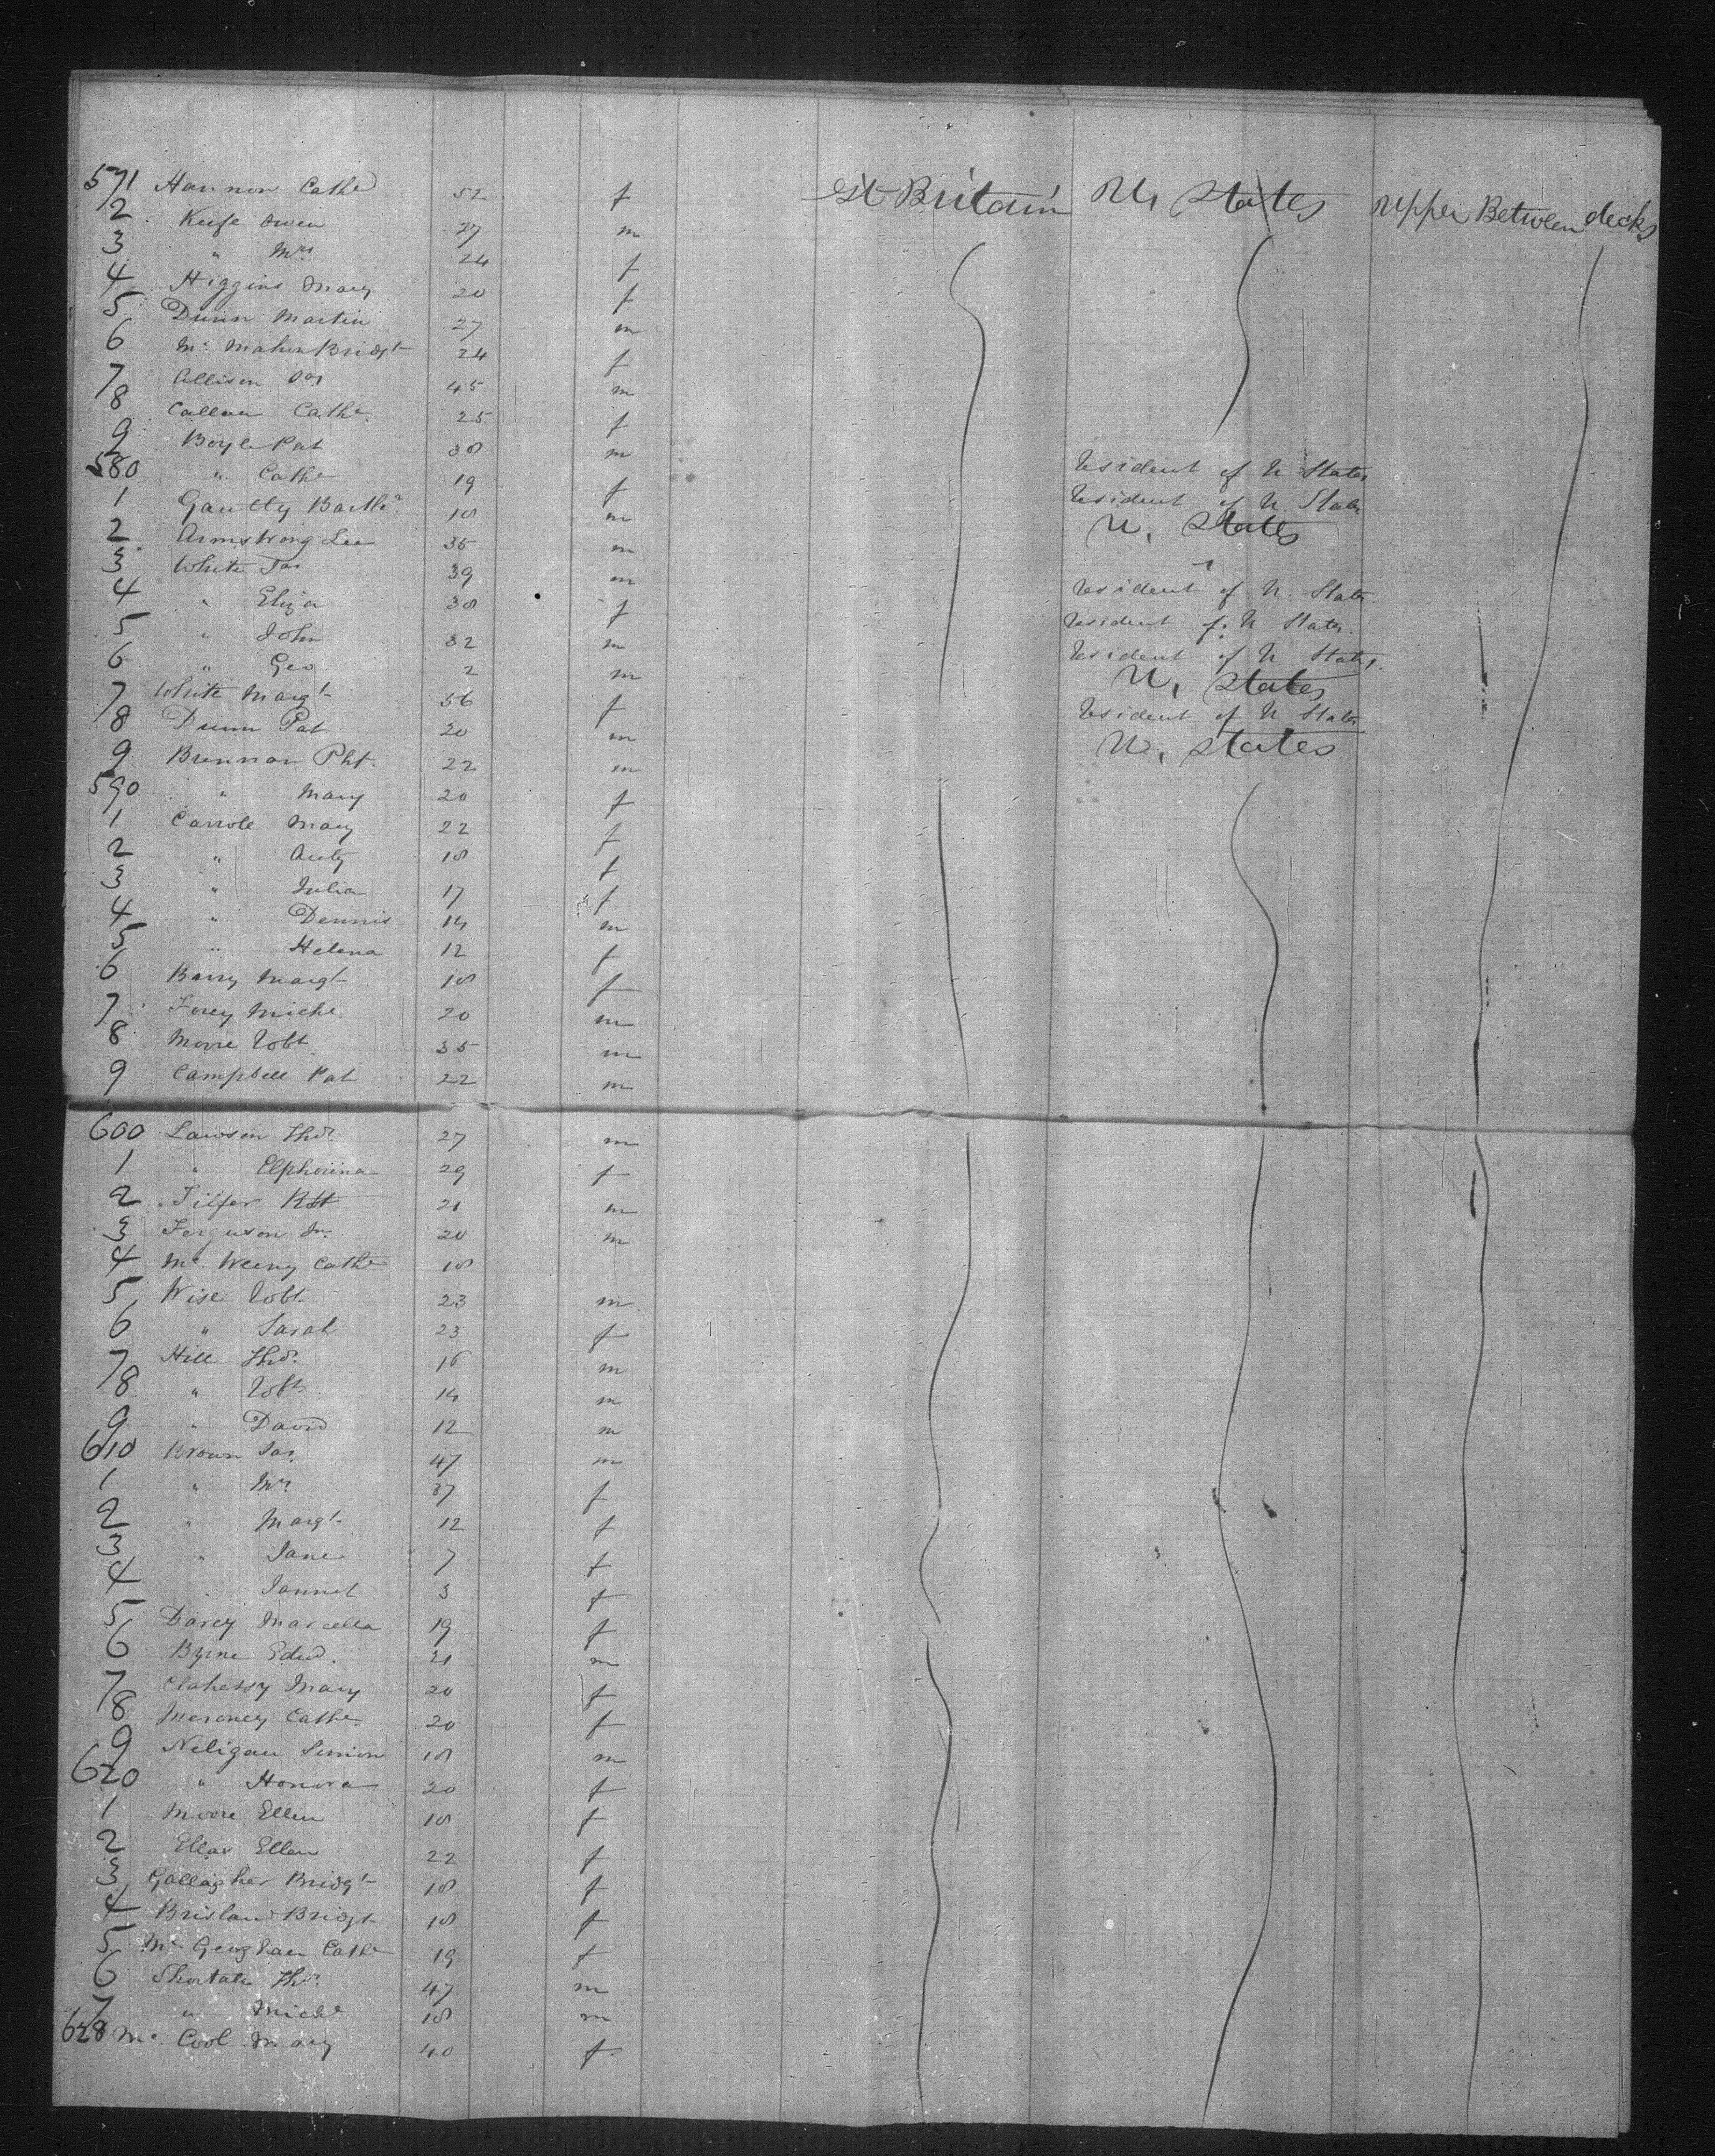 571 Hannon Cathe 52 f Gt Britain U, States Upper Between decks
2 Keefe Owen 27 m
3 " Mrs 24 f
4 Higgins Mary 20 f
5 Dunn Martin 27 m
6 Mc Mahon Bridgt 24 f
7 Allison Jas 45 m
8 Callan Cathe 25 f
9 Boyle Pat 38 m Resident of U States
580 " Cathe 19 f Resident of U. States
1 Gautty Barth 18 m U, States
2 Armstrong Lee 35 m "
3 White Jas 39 m Resident of U. States
4 " Eliza 38 f Resident of U States
5 " John 32 m Resident of U States
6 " Geo 2 m U, States
7 White Margt 56 f Resident of U States
8 Dunn Pat 20 m U, States
9 Brennan Pht. 22 m
590 " Mary 20 f
1 Carrole Mary 22 f
2 " Anty 18 f
3 " Julia 17 f
4 " Dennis 14 m
5 " Helena 12 f
6 Barry Margt 18 f
7 Forey Miche 20 m
8 Moore Robt 35 m
9 Campbell Pat 22 m
600 Lawson Thos 27 m
1 " Elphorina 29 f
2 Tilfer Robt 21 m
3 Ferguson Jn. 20 m
4 Mc Weeny Cathe 18
5 Wise Robt 23 m
6 " Sarah 23 f
7 Hill Thos 16 m
8 " Robt 14 m
9 " David 12 m
610 Brown Jas 47 m
1 " Mrs 37 f
2 " Margt 12 f
3 " Jane 7 f
4 " Jannet 3 f
5 Darcy Marcella 19 f
6 Byrne Edwd. 21 m
7 Clahessy Mary 20 f
8 Moroney Cathe 20 f
9 Neligan Simion 18 m
620 " Honora 20 f
1 Moore Ellen 18 f
2 Ellar Ellen 22 f
3 Gallagher Bridgt 18 f
4 Brislan Bridgt 18 f
5 Mc Geoghan Cathe 19 f
6 Shortale Thos 47 m
7 " Miche 18 m
628 Mc Cool Mary 40 f